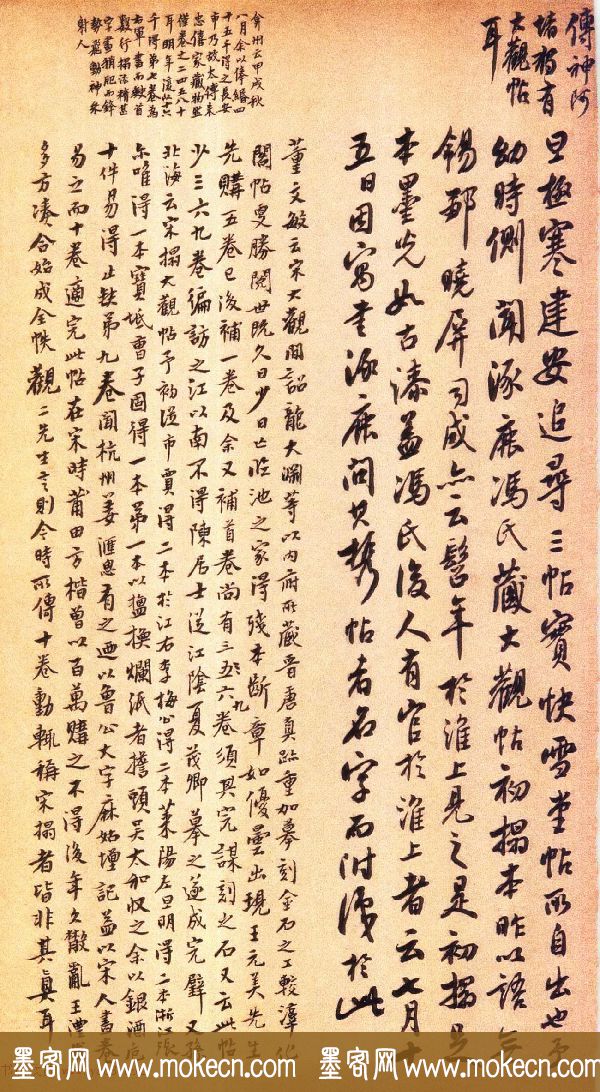 傳神阿
堵獨有
大觀帖
耳
旦極寒建安追尋三帖寶快雪堂帖所自出也予
幼時側聞涿鹿馮氏藏大觀帖初搨本昨以語無
錫鄒曉屏司成亦云髫年於淮上見之是初搨足
本墨光如古漆蓋馮氏後人有官於淮上者云七月十
五日因寓書涿鹿問其携帖者名字而附識於此
弇州云甲戌秋
八月余以俸緡四
十五千得之長安
市乃故太傅朱
忠僖家藏物然
僅卷之二四五八十
耳明年復以十六
千得第七卷為
右軍書而缺首
數行搨法精甚
字畫稍肥而鋒
勢飛動神采
射人
董文敏云宋大觀間詔龍大淵等以內府所藏晉唐真跡重加摹刻金石之工較淳化
閣帖更勝閱世既久日少日亡臨池之家得殘本斷章如優曇出現王元美先生
先購五卷已後補一卷及余又補首卷尚有三五六九卷須其完謀刻之石又云此帖
少三六九卷徧訪之江以南不得陳居士從江陰夏茂卿摹之遂成完璧又孫
北海云宋搨大觀帖予初從市賈得二本於江右李梅公得二本萊陽左旦明得二本浙江張
尔唯得一本寶坻曹子固得一本第一本以換爛紙者擔頭吳太和收之余以銀酒卮
十件易得止缺第九卷聞杭州姜滙思有之迺以魯公大字麻姑壇記益以宋人書卷
易之而十卷適完此帖在宋時莆田方楷曾以百萬購之不得後年久散亂王澧
多方湊合始成全帙觀二先生言則今時所傳十卷動輒稱宋搨者皆非其真耳
墨客网 www.mokecn.com 墨客网 www.mokecn.com